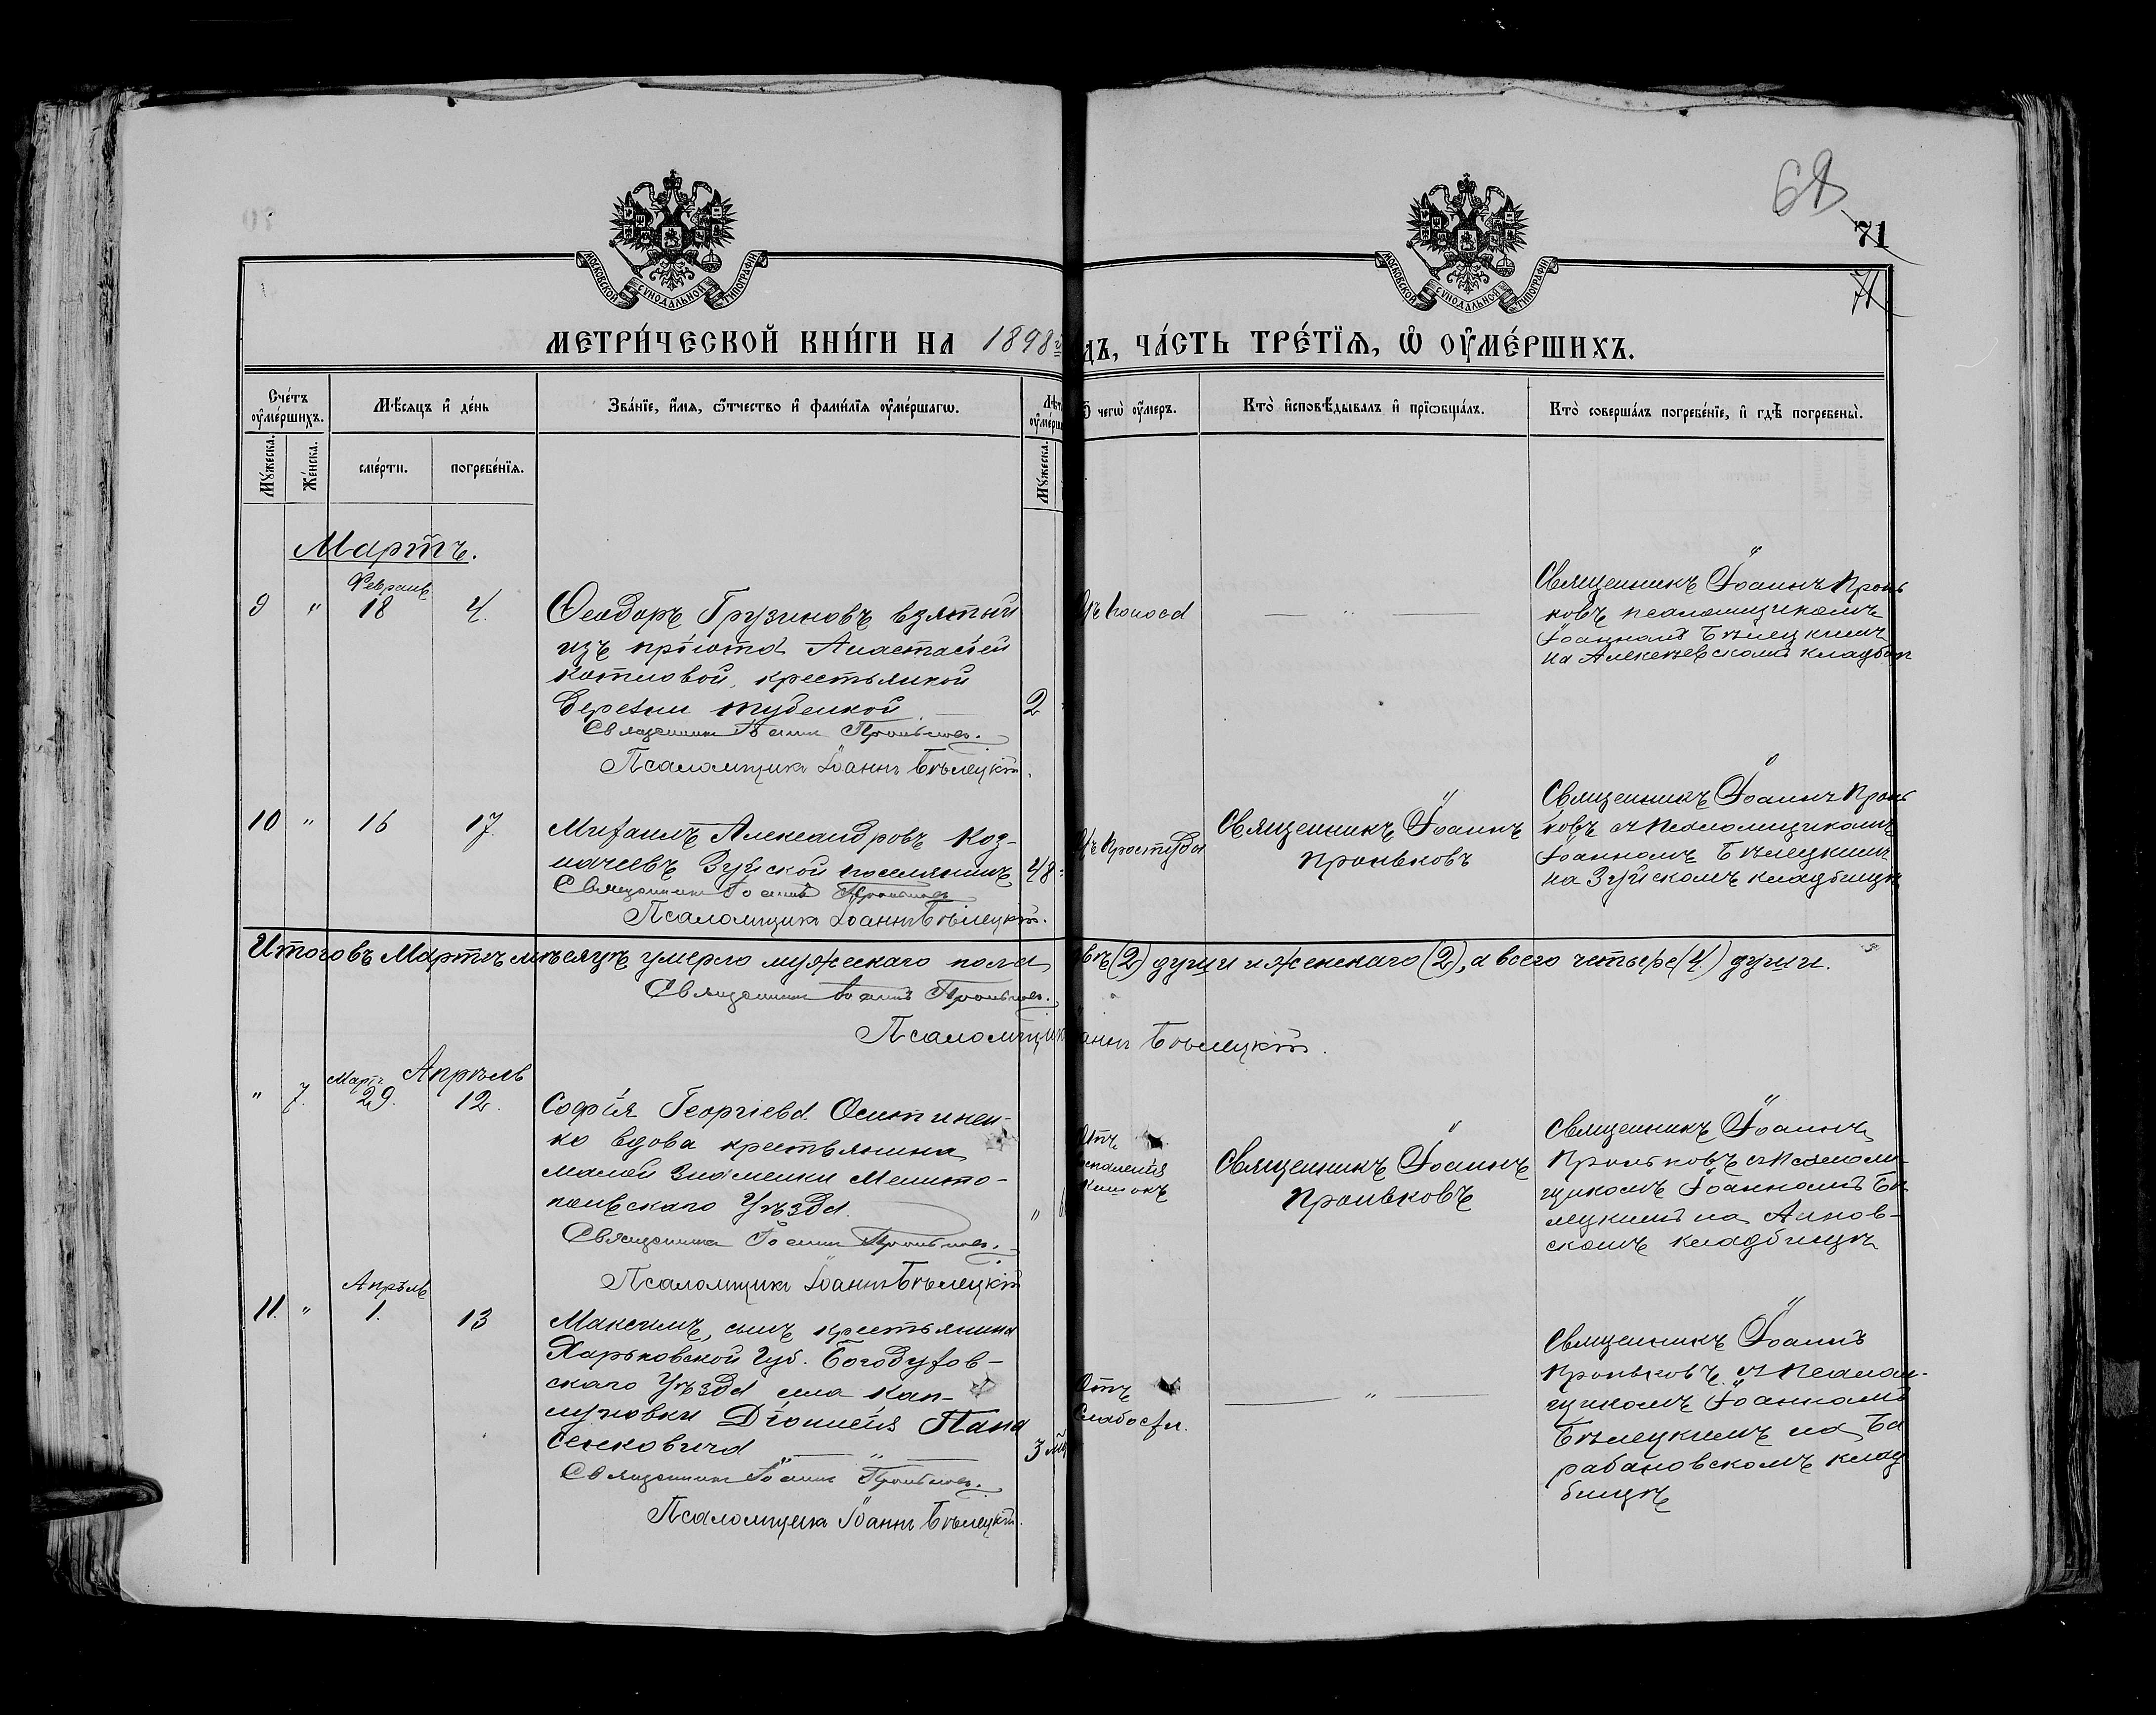 68
71
71
МОСКОВСКОЙ СѴНОДАЛЬНОЙ ТИПОГРАФІИ
МОСКОВСКОЙ СѴНОДАЛЬНОЙ ТИПОГРАФІИ
МЕТРИ́ЧЕСКОЙ КНИ́ГИ НА 1898 й
ДЪ, ЧА́СТЬ ТРЕ́ТЇѦ, Ѡ ОУ҆МЕ́РШИХЪ.
Сче́тъ оу҆ме́ршихъ.
Мѣ́сяцъ и҆ де́нь
Зва́нїе, и҆́мѧ, ѻ҆́тчество и҆ фамѝлїѧ оу҆ме́ршагѡ.
Лѣт
оу҆ме́рш
Ѿ чегѡ̀ оу҆́меръ.
Кто̀ и҆сповѣ́дывалъ и҆ прїѡбща́лъ.
Кто̀ соверша́лъ погребе́нїе, и҆ гдѣ̀ погребены̀.
Мꙋ́жеска.
Же́нска.
сме́рти.
погребе́нїѧ.
Мꙋ́жеска.
Мартъ.
9 " Февраль 18 4.
Ѳеодоръ Грузиновъ взятый
изъ пріюта Анастасіей
Котловой, крестьянкой
деревни
2
Священникъ Іоаннъ Проньковъ.
Псаломщикъ Іоаннъ Бѣлецкій.
— " —
Священникъ Іоаннъ Пронь
ковъ псаломщикомъ
Іоанномъ Бѣлецкимъ
на Алексѣевскомъ кладбищ
10 " 16 17.
Михаилъ Александровъ Коз-
начеевъ Зуйской поселянинъ
48
Священникъ Іоаннъ Проньковъ
Псаломщикъ Іоаннъ Бѣлецкій.
Простуды
Священникъ Іоаннъ
Проньковъ
Священникъ Іоаннъ Пронь
ковъ съ Псаломщикомъ
Іоанномъ Бѣлецкимъ
на Зуйскомъ кладбищѣ
Итого въ Мартѣ мѣсяцѣ умерло мужескаго пола двѣ (2) души и женскаго (2), а всего четыре (4) души.
Священникъ Іоаннъ Проньковъ.
Псаломщикъ Іоаннъ Бѣлецкій.
Апрѣль
" 7. Мартъ 29. 12.
Софія Георгіева
ко вдова крестьянина
малой Знаменки Мелито-
польскаго Уѣзда.
"
Священникъ Іоаннъ Проньковъ.
Псаломщикъ Іоаннъ Бѣлецкій
Отъ
воспаленія
кишокъ
Священникъ Іоаннъ
Проньковъ
Священникъ Іоаннъ
Проньковъ съ Псалом-
щикомъ Іоанномъ Бѣ
лецкимъ на Аннов-
скомъ кладбищѣ
11. " Апрѣль 1. 13
Максимъ, сынъ крестьянина
Харьковской Губ. Богодухов-
скаго Уѣзда села Кап-
луновки Діонисія Пана
сенковича — " —
3 м
Священникъ Іоаннъ Проньковъ.
Псаломщикъ Іоаннъ Бѣлецкій.
Отъ
Слабости.
— " —
Священникъ Іоаннъ
Проньковъ съ Псалом-
щикомъ Іоанномъ
Бѣлецкимъ на Ба
рабановскомъ клад
бищѣ